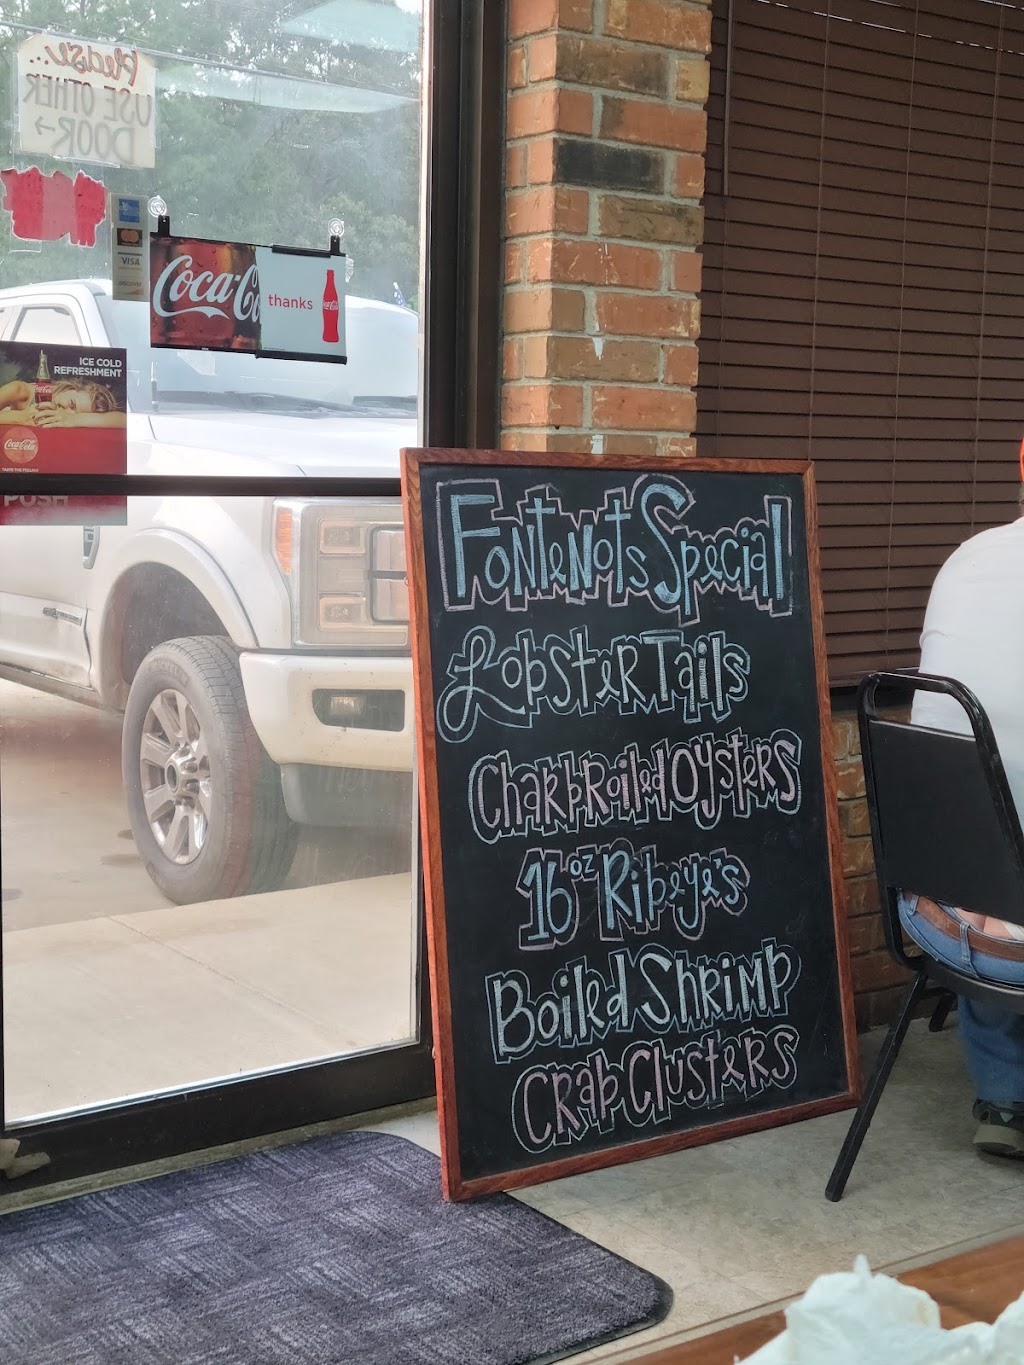 Please...
USE OTHER
DOOR→
VISA
DISCOVER
Coca-Co
thanks
ICE COLD
REFRESHMENT
Coca-Cola
TASTE THE FEELING
PUSH
FONTENOTS Special
LOBSTER Tails
CHARbROiled OYSTERS
16oz Ribeye's
Boiled SHRIMP
CRAb CLUSTERS